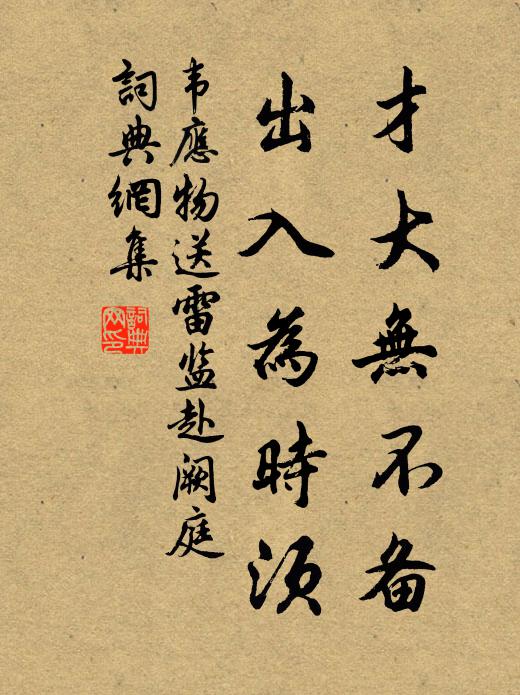 才大無不备
出入為時須
韦應物送雷监赴阙庭
詞典網集
詞典网印